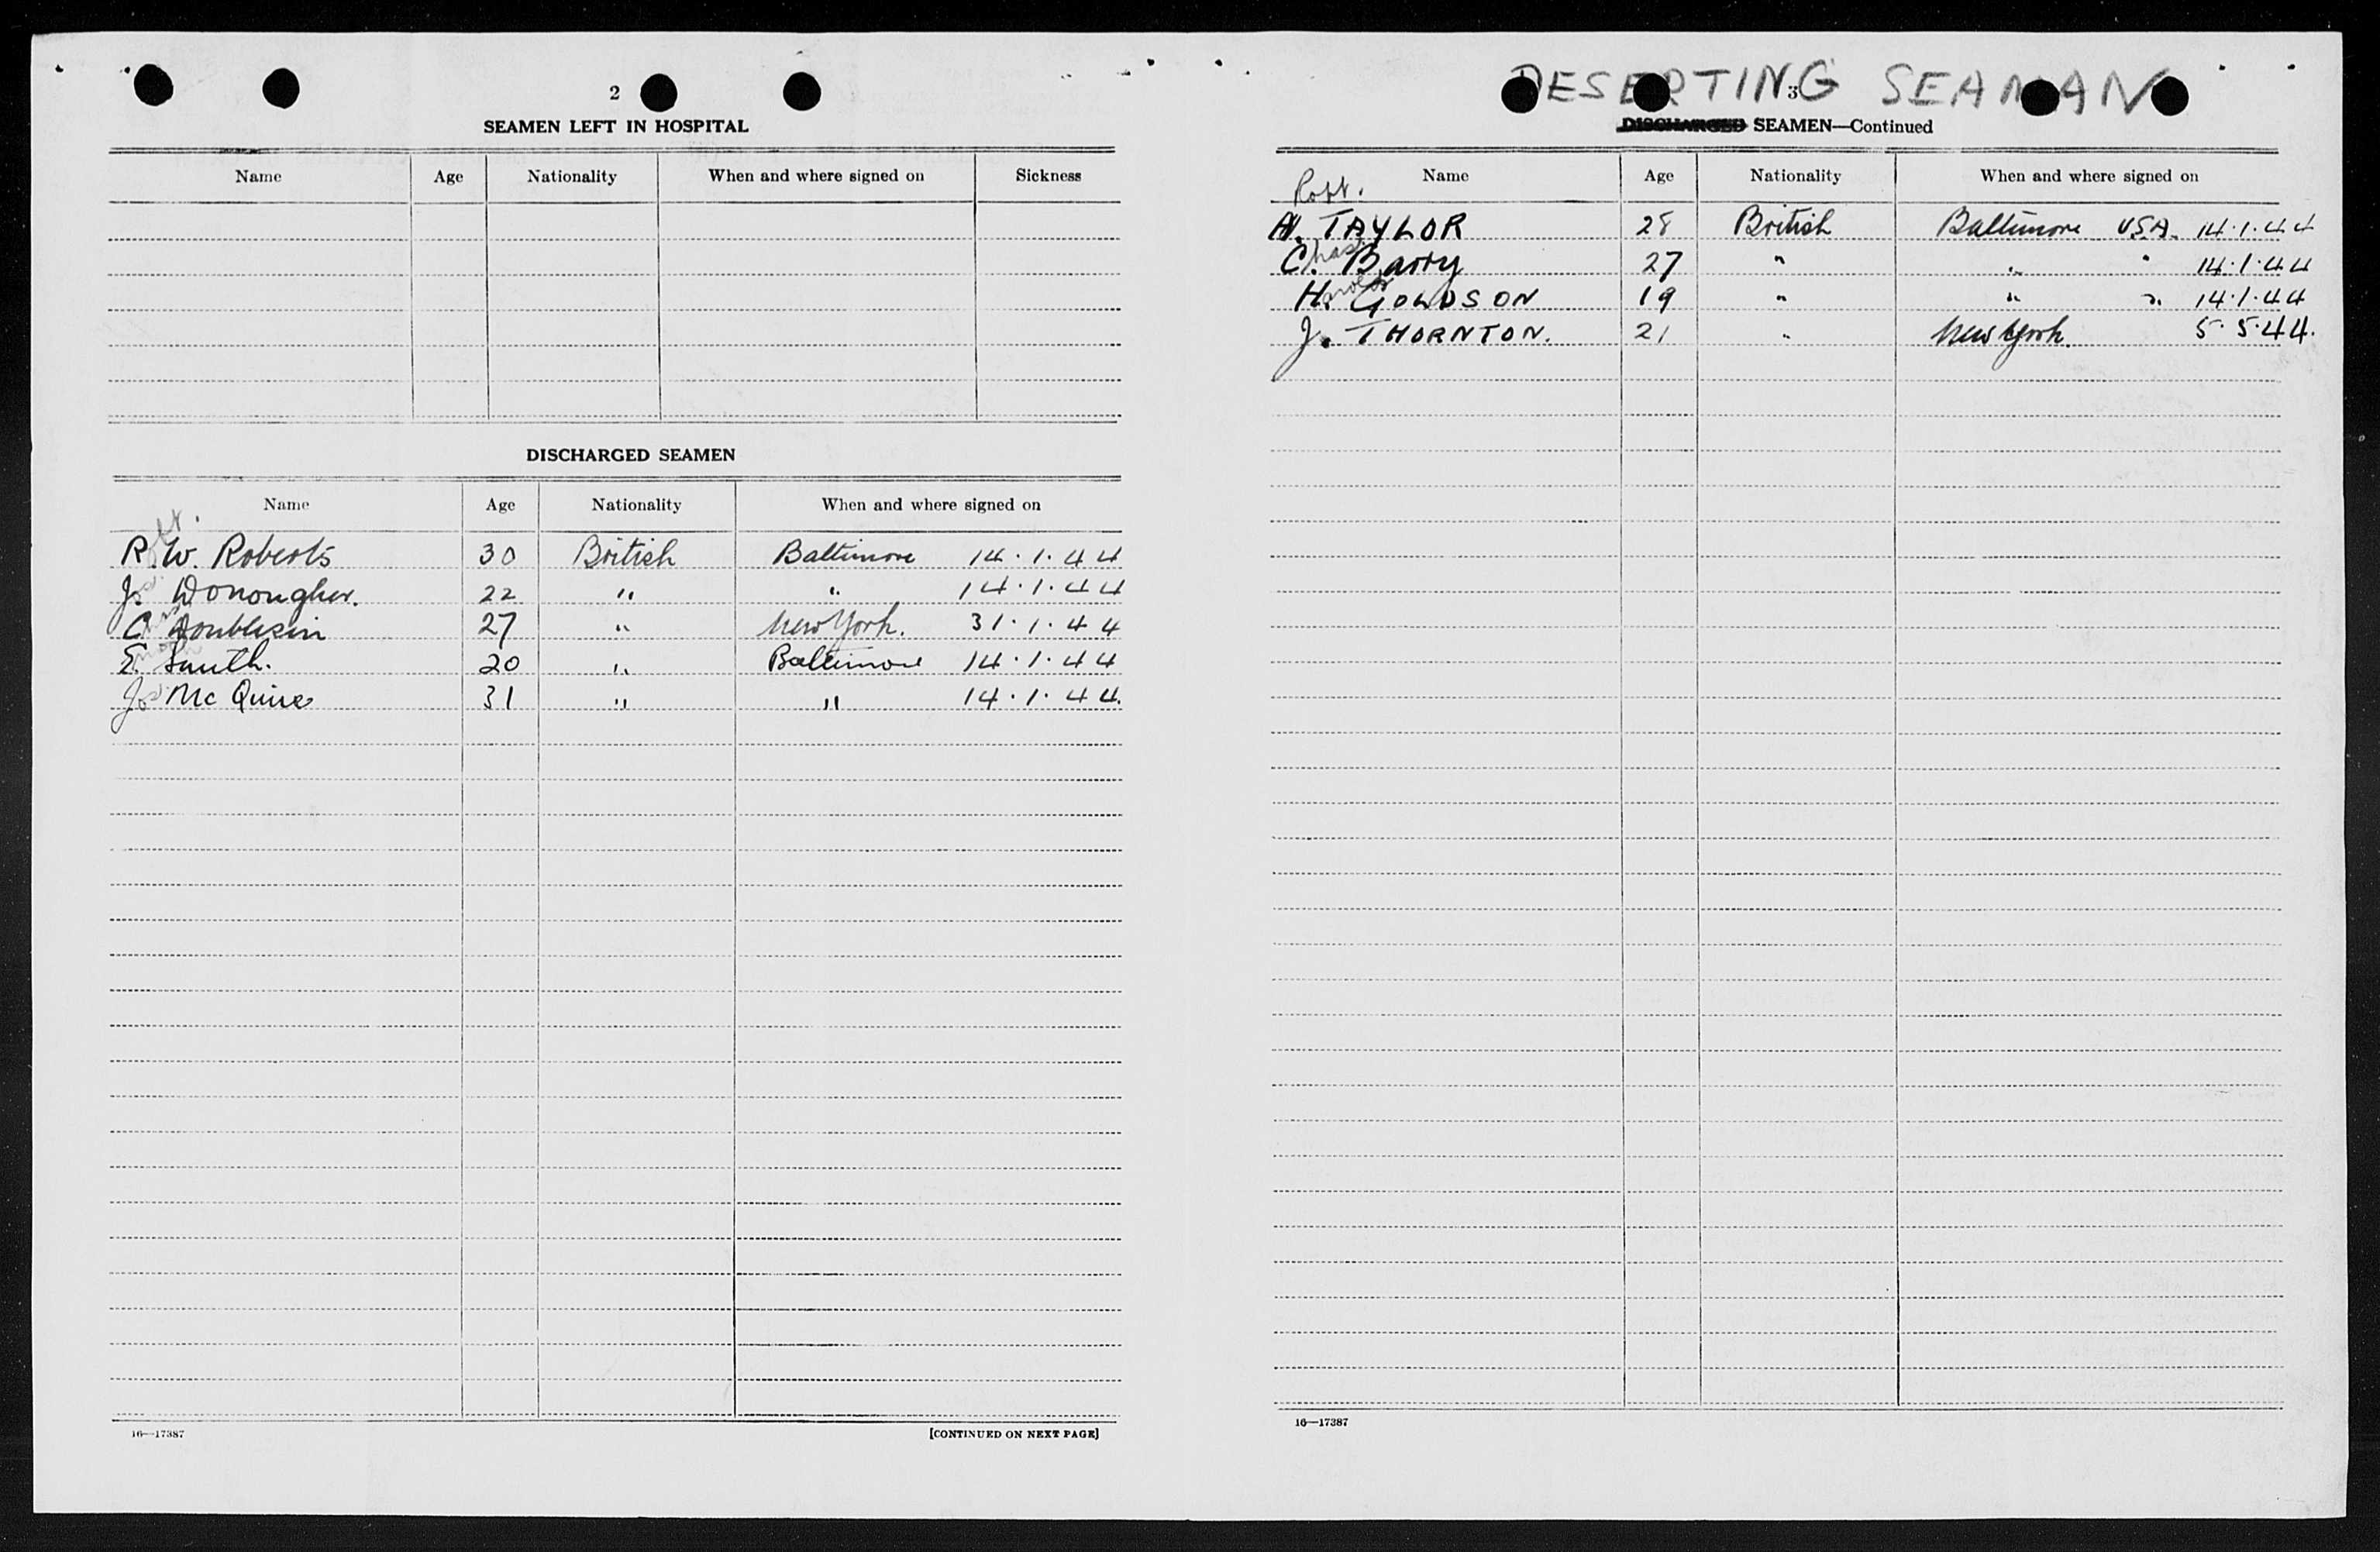 2
SEAMEN LEFT IN HOSPITAL
Name Age Nationality When and where signed on Sickness
DISCHARGED SEAMEN
Name Age Nationality When and where signed on
R. W. Roberts 30 British Baltimore 14.1.44
J. Donougher. 22 " " 14.1.44
C 27 " New York. 31.1.44
E. Smith. 20 " Baltimore 14.1.44
Jos Mc Quire 31 " " 14.1.44.
16—17387 [CONTINUED ON NEXT PAGE]
DESERTING SEAMAN
3
DISCHARGED SEAMEN—Continued
Name Age Nationality When and where signed on
Robt.
TAYLOR 28 British Baltimore USA. 14.1.44
Chas. Barry 27 " " " 14.1.44
Harold GOLDSON 19 " " " 14.1.44
J. THORNTON. 21 " New York. 5.5.44.
16—17387